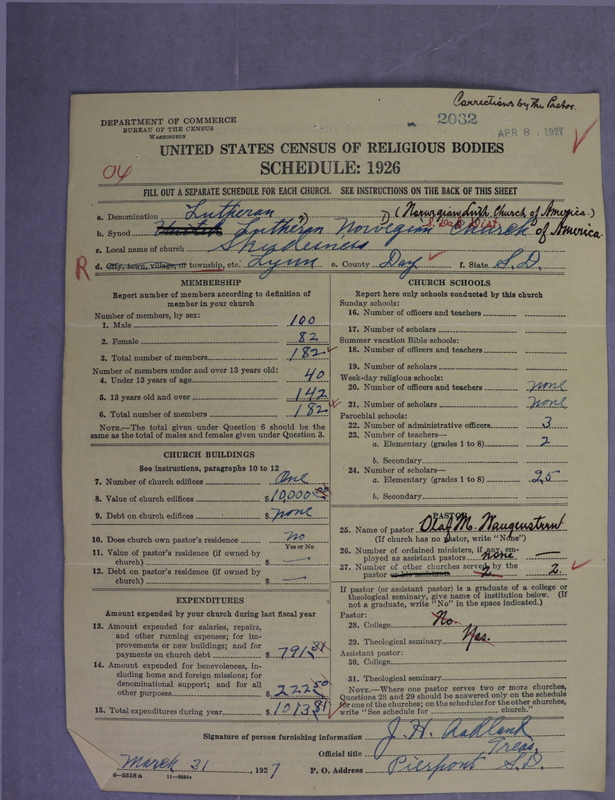 Corrections by the Pastor.
DEPARTMENT OF COMMERCE
BUREAU OF THE CENSUS
WASHINGTON
2032
APR 8 . 1927
UNITED STATES CENSUS OF RELIGIOUS BODIES
04
SCHEDULE: 1926
FILL OUT A SEPARATE SCHEDULE FOR EACH CHURCH. SEE INSTRUCTIONS ON THE BACK OF THIS SHEET
a. Denomination Lutheran (Norwegian Luth Church of America.)
b. Synod United Lutheran Norwegian Church of America.
c. Local name of church
R d. City, town, village, or township, etc. Lynn e. County Day f. State S.D.
MEMBERSHIP
Report number of members according to definition of member in your church
Number of members, by sex:
1. Male 100
2. Female 82
3. Total number of members 182
Number of members under and over 13 years old:
4. Under 13 years of age 40
5. 13 years old and over 142
6. Total number of members 182
NOTE.—The total given under Question 6 should be the same as the total of males and females given under Question 3.
CHURCH BUILDINGS
See instructions, paragraphs 10 to 12
7. Number of church edifices One
8. Value of church edifices $10,000
9. Debt on church edifices $ none
10. Does church own pastor's residence no
Yes or No
11. Value of pastor's residence (if owned by church) $ —
12. Debt on pastor's residence (if owned by church) $ —
EXPENDITURES
Amount expended by your church during last fiscal year
13. Amount expended for salaries, repairs, and other running expenses; for improvements or new buildings; and for payments on church debt $ 791 31
14. Amount expended for benevolences, including home and foreign missions; for denominational support; and for all other purposes $ 222 50
15. Total expenditures during year $ 1013 81
CHURCH SCHOOLS
Report here only schools conducted by this church
Sunday schools:
16. Number of officers and teachers
17. Number of scholars
Summer vacation Bible schools:
18. Number of officers and teachers
19. Number of scholars
Week-day religious schools:
20. Number of officers and teachers none
21. Number of scholars none
Parochial schools:
22. Number of administrative officers 3
23. Number of teachers—
a. Elementary (grades 1 to 8) 2
b. Secondary
24. Number of scholars—
a. Elementary (grades 1 to 8) 25
b. Secondary
PASTOR
25. Name of pastor Olaf M.
(If church has no pastor, write "None")
26. Number of ordained ministers, if any, employed as assistant pastors none —
27. Number of other churches served by the pastor or his assistants 2 2
If pastor (or assistant pastor) is a graduate of a college or theological seminary, give name of institution below. (If not a graduate, write "No" in the space indicated.)
Pastor:
28. College No.
29. Theological seminary Yes.
Assistant pastor:
30. College
31. Theological seminary
NOTE.—Where one pastor serves two or more churches, Questions 28 and 29 should be answered only on the schedule for one of the churches; on the schedules for the other churches, write "See schedule for church."
Signature of person furnishing information J. H. Aadland
Official title Treas.
March 31, 1927 P. O. Address Pierpont S.D.
8—5518a